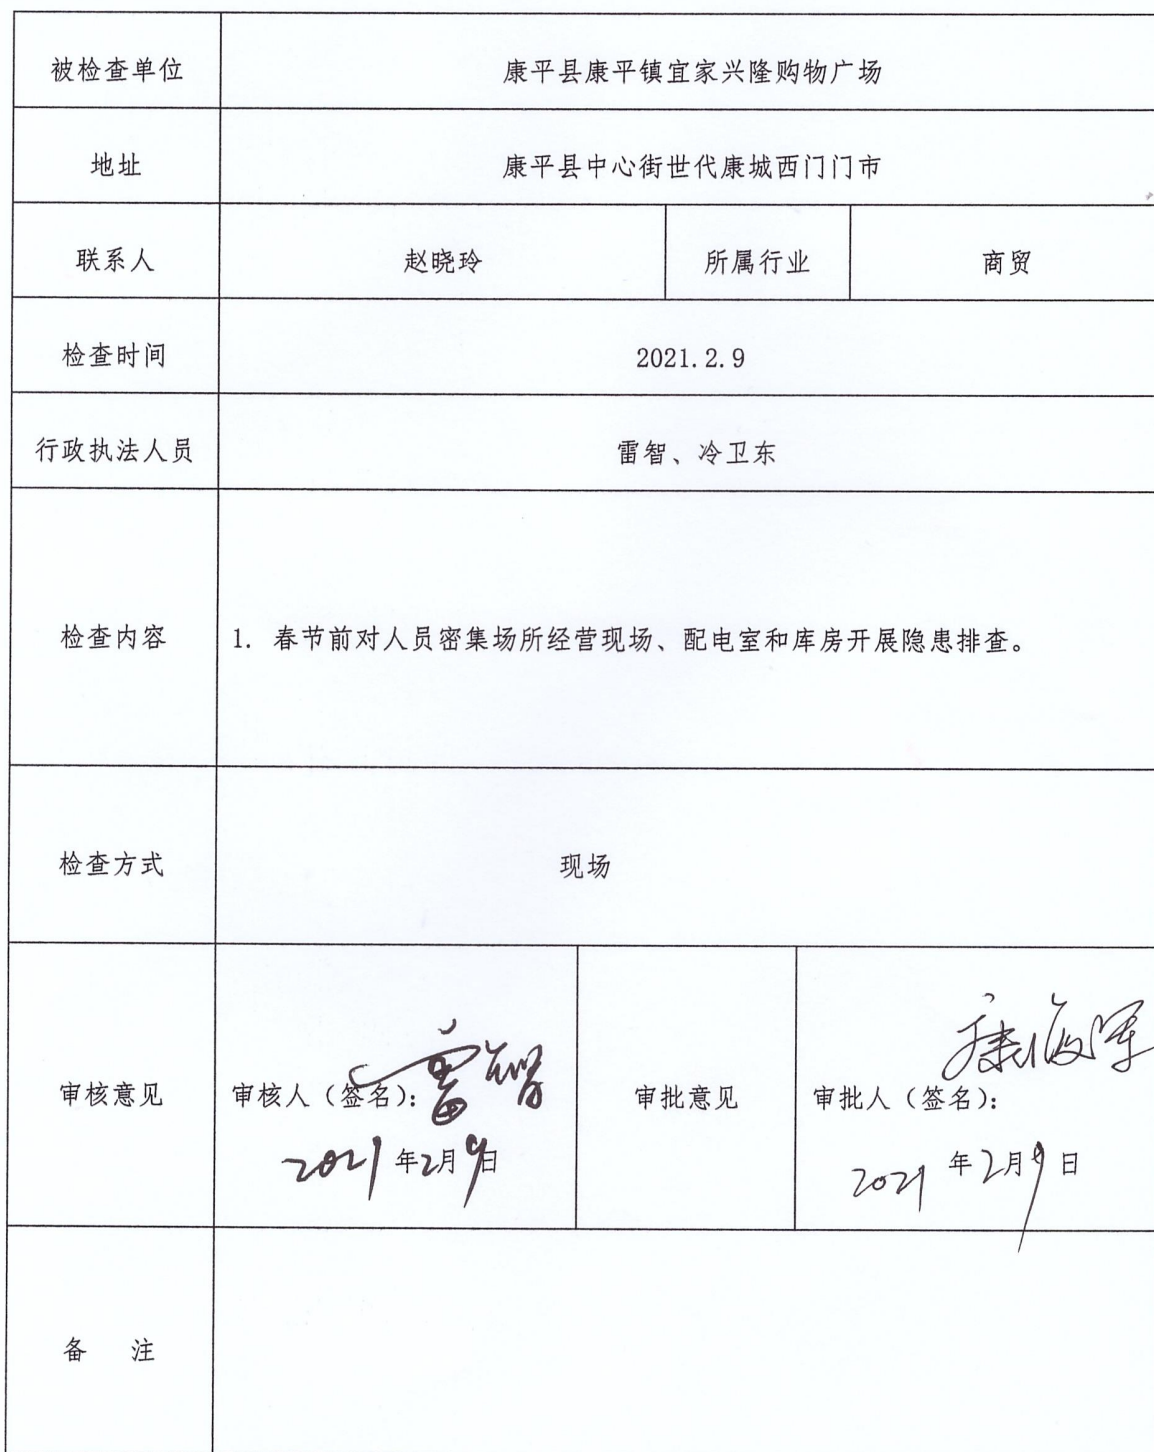 被检查单位 康平县康平镇宜家兴隆购物广场
地址 康平县中心街世代康城西门门市
联系人 赵晓玲 所属行业 商贸
检查时间 2021.2.9
行政执法人员 雷智、冷卫东
检查内容 1. 春节前对人员密集场所经营现场、配电室和库房开展隐患排查。
检查方式 现场
审核意见 审核人（签名）： 雷智
2021 年 2 月 9 日
审批意见 审批人（签名）：
2021 年 2 月 9 日
备 注